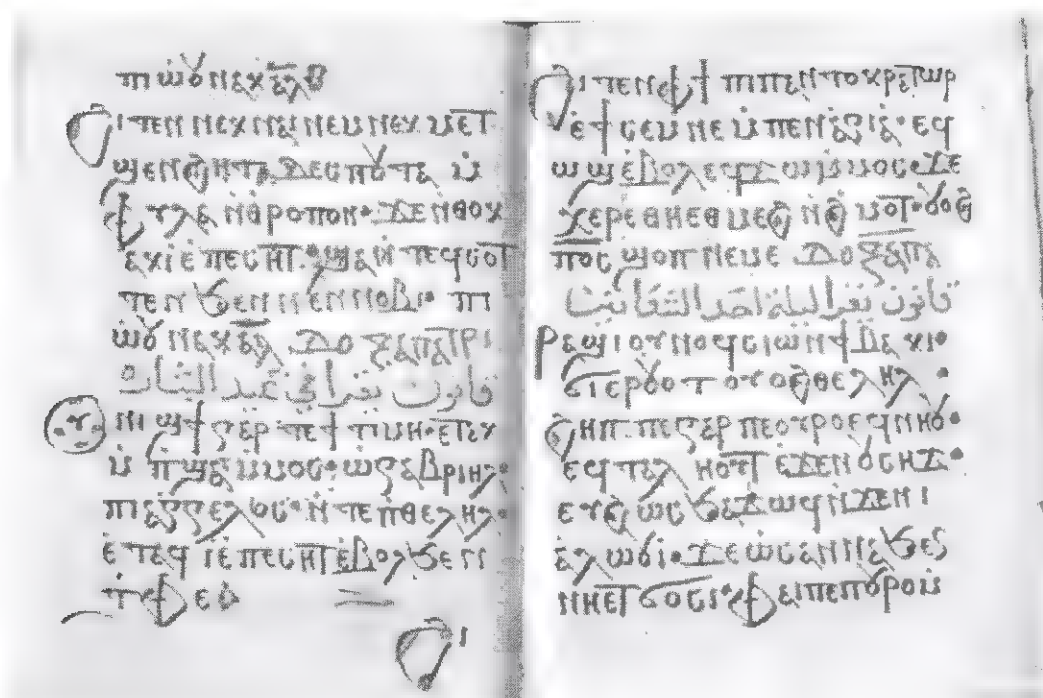 ⲡⲓⲱⲟⲩ ⲛⲁⲭ ⲁⲗ
ϩⲓⲧⲉⲛ ⲛⲉⲭⲛⲁⲓ ⲛⲉⲙ ⲛⲉⲭ ⲙⲉⲧ
ϣⲉⲛϩⲏⲧ ⲇⲉⲥⲡⲟⲩⲧⲁ ⲙ̀
ⲫⲩⲗⲁⲛⲑⲣⲟⲡⲟⲛ· ϫⲉ ⲛⲑⲟⲭ
ⲁⲭⲓ ⲉ̀ⲡⲉⲥⲏⲧ· ϣⲁⲛ̀ⲧⲉϥⲥⲟⲧ
ⲧⲉⲛ ϧⲉⲛ ⲛⲉⲛⲛⲟⲃⲓ· ⲡⲓ
ⲱ̀ⲟⲩ ⲛⲁⲭ ⲁⲗ ⲇⲟⲝⲁ ⲡⲁⲧⲣⲓ
قانون يقرا في عيد البشاره
ⲛⲓϣϯ ⲅⲁⲣ ⲧⲉ ϯⲧⲓⲙⲏ· ⲉⲧⲉⲭ
ⲙ̀ⲡ̀ϣⲁ ⲙ̀ⲙⲟⲥ· ⲱ̀ ⲅⲁⲃⲣⲓⲏⲗ·
ⲡⲓⲁⲅⲅⲉⲗⲟⲥ· ⲛ̀ⲧⲉ ⲡⲑⲉⲗⲏⲗ·
ⲉ̀ⲧⲉϥⲓ ⲉ̀ⲡⲉⲥⲏⲧ ⲉ̀ⲃⲟⲗ ϧⲉⲛ
ⲧ̀ⲫⲉ ⲁ̀
ϩⲓ
ϩⲓⲧⲉⲛ ⲫϯ ⲡⲓⲡⲁⲛⲧⲟⲕⲣⲁⲧⲱⲣ
ⲉ̀ϯ ⲥⲉⲙⲛⲉ ⲙ̀ⲡⲉⲛⲁⲅⲓⲁ· ⲉϥ
ⲱϣ ⲉ̀ⲃⲟⲗ ⲉϥϫⲱ ⲙ̀ⲙⲟⲥ ϫⲉ
ⲭⲉⲣⲉ ⲑⲏⲉⲑⲙⲉϩ ⲛ̀ϩⲙⲟⲧ· ⲟⲩⲟϩ
ⲡⲟⲥ ϣⲟⲡ ⲛⲉⲙⲉ ⲇⲟⲝⲁ ⲡⲁ
قانون يقرا ليلة احد الشعانين
ⲣⲁϣⲓ ⲟⲩⲛⲟϥ ⲥⲓⲱⲛ ϯⲃⲁⲭⲓ·
ϭⲓⲉⲣⲟⲩⲟⲧ ⲟⲩⲟϩ ⲑⲉⲗⲏⲗ·
ϩⲏⲡⲡⲉ ⲅⲁⲣ ⲡⲉⲟⲩⲣⲟ ⲉϥⲛⲏⲟⲩ·
ⲉϥⲧⲁⲗⲏⲟⲩⲧ ⲉϫⲉⲛ ⲟⲩⲥⲏϫ·
ⲉⲩϩⲱⲥ ϧⲁϫⲱϥ ⲛ̀ϫⲉⲛⲓ
ⲁ̀ⲗⲱⲟⲩⲓ· ϫⲉ ⲱ̀ⲥⲁⲛⲛⲁ ϧⲉⲛ
ⲛⲏⲉⲧϭⲟⲥⲓ· ⲫⲁⲓ ⲡⲉ ⲡⲟⲩⲣⲟ ⲙ̀